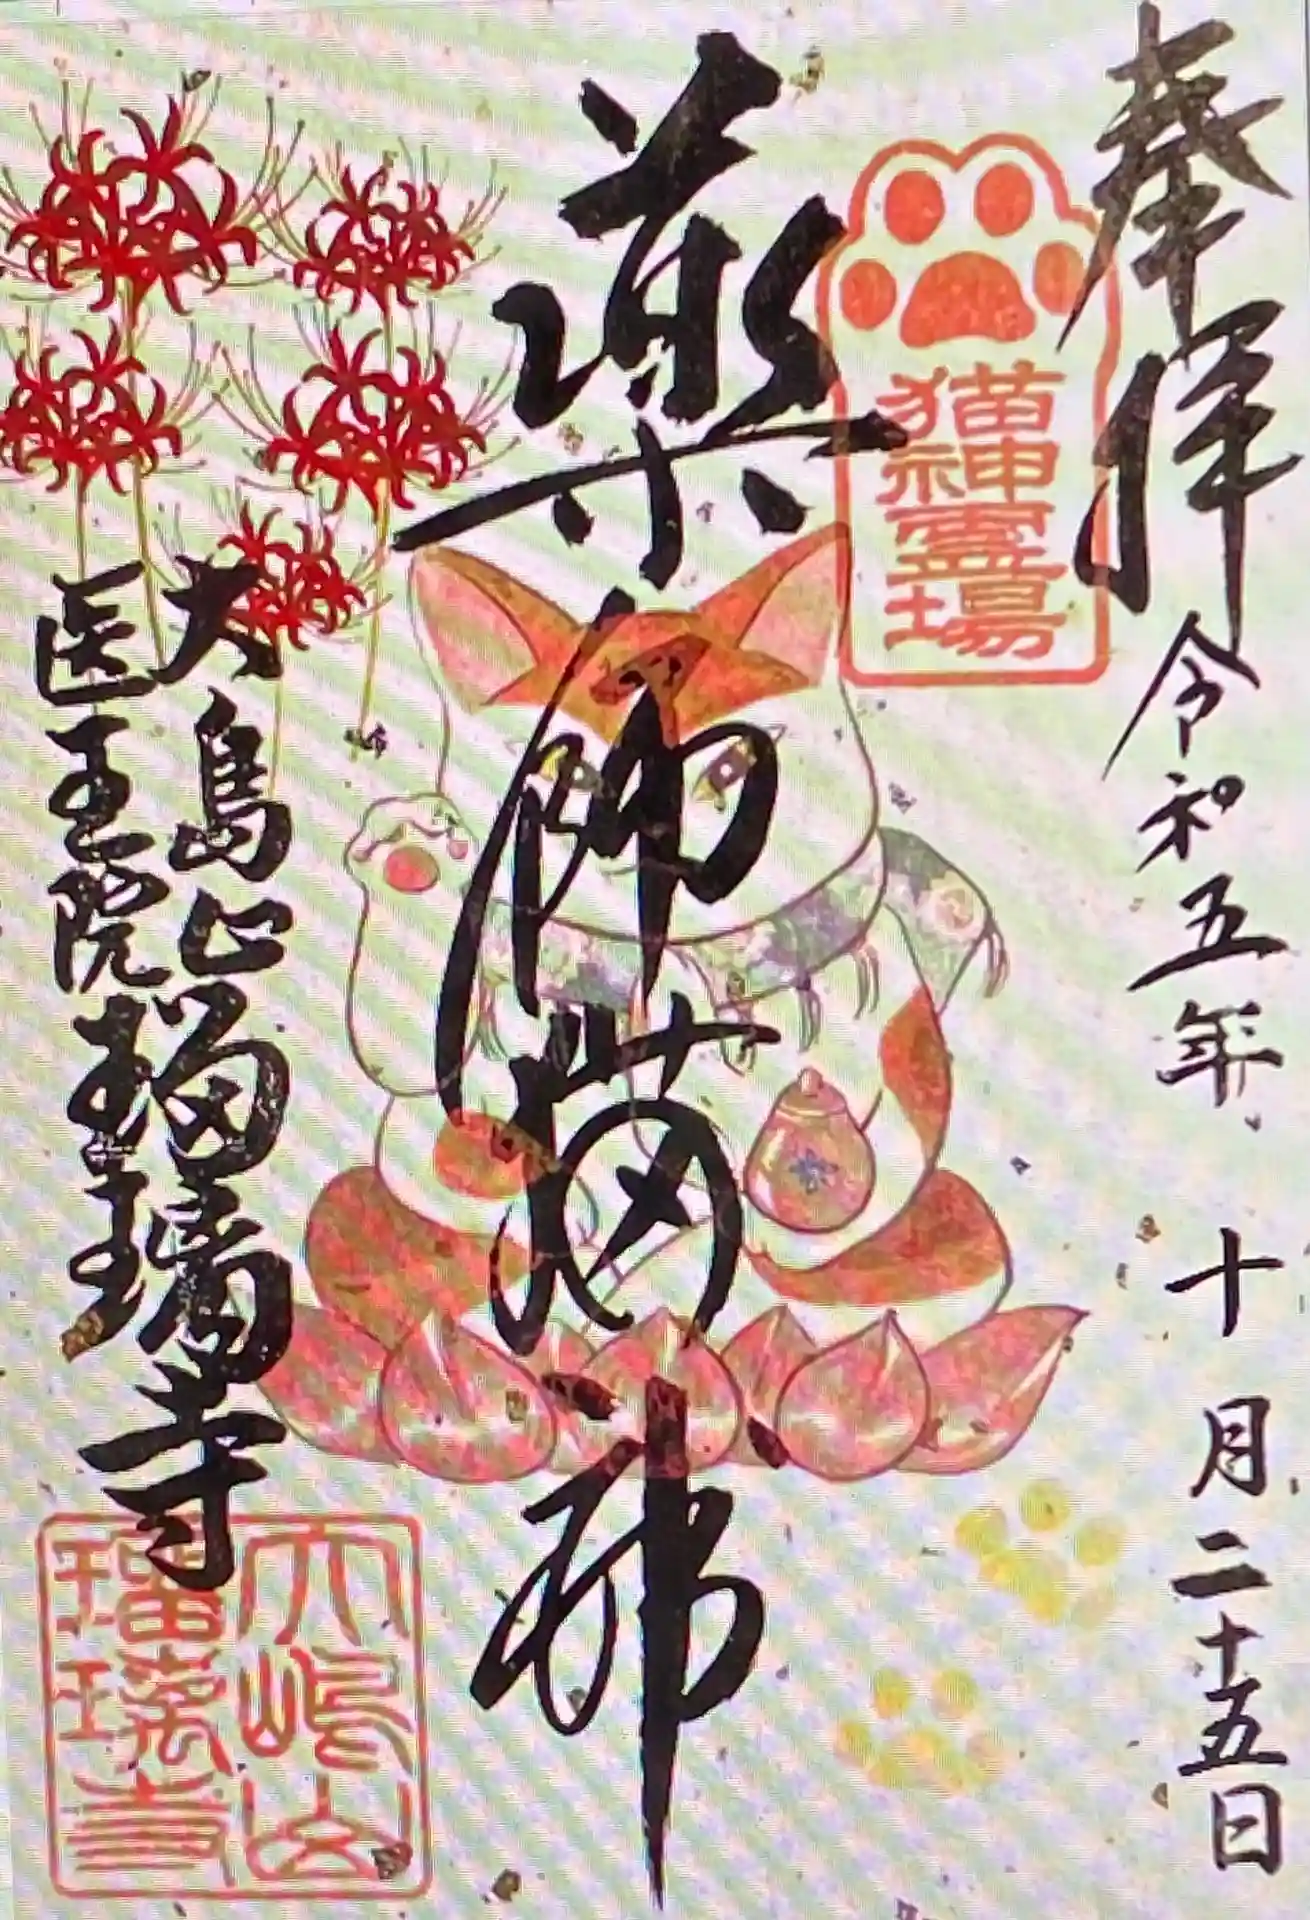 奉拝
令和五年 十月二十五日
猫神霊場
薬師猫神
大島山
医王院
瑠璃寺
大嶋山
瑠璃寺